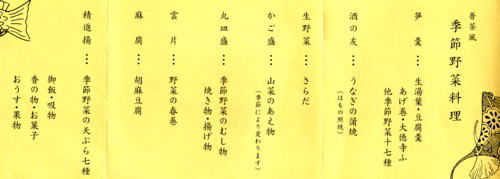 普茶風
季節野菜料理
笋羹…生湯葉・豆腐羹
あげ巻・大徳寺ふ
他季節野菜十七種
酒の友…うなぎの蒲焼
(はもの照焼)
生野菜…さらだ
かご盛…山菜のあえ物
(季節により変わります)
丸皿盛…季節野菜のむし物
焼き物・揚げ物
雲片…野菜の春巻
麻腐…胡麻豆腐
精進揚…季節野菜の天ぷら七種
御飯・吸物
香の物・お菓子
おうす・果物